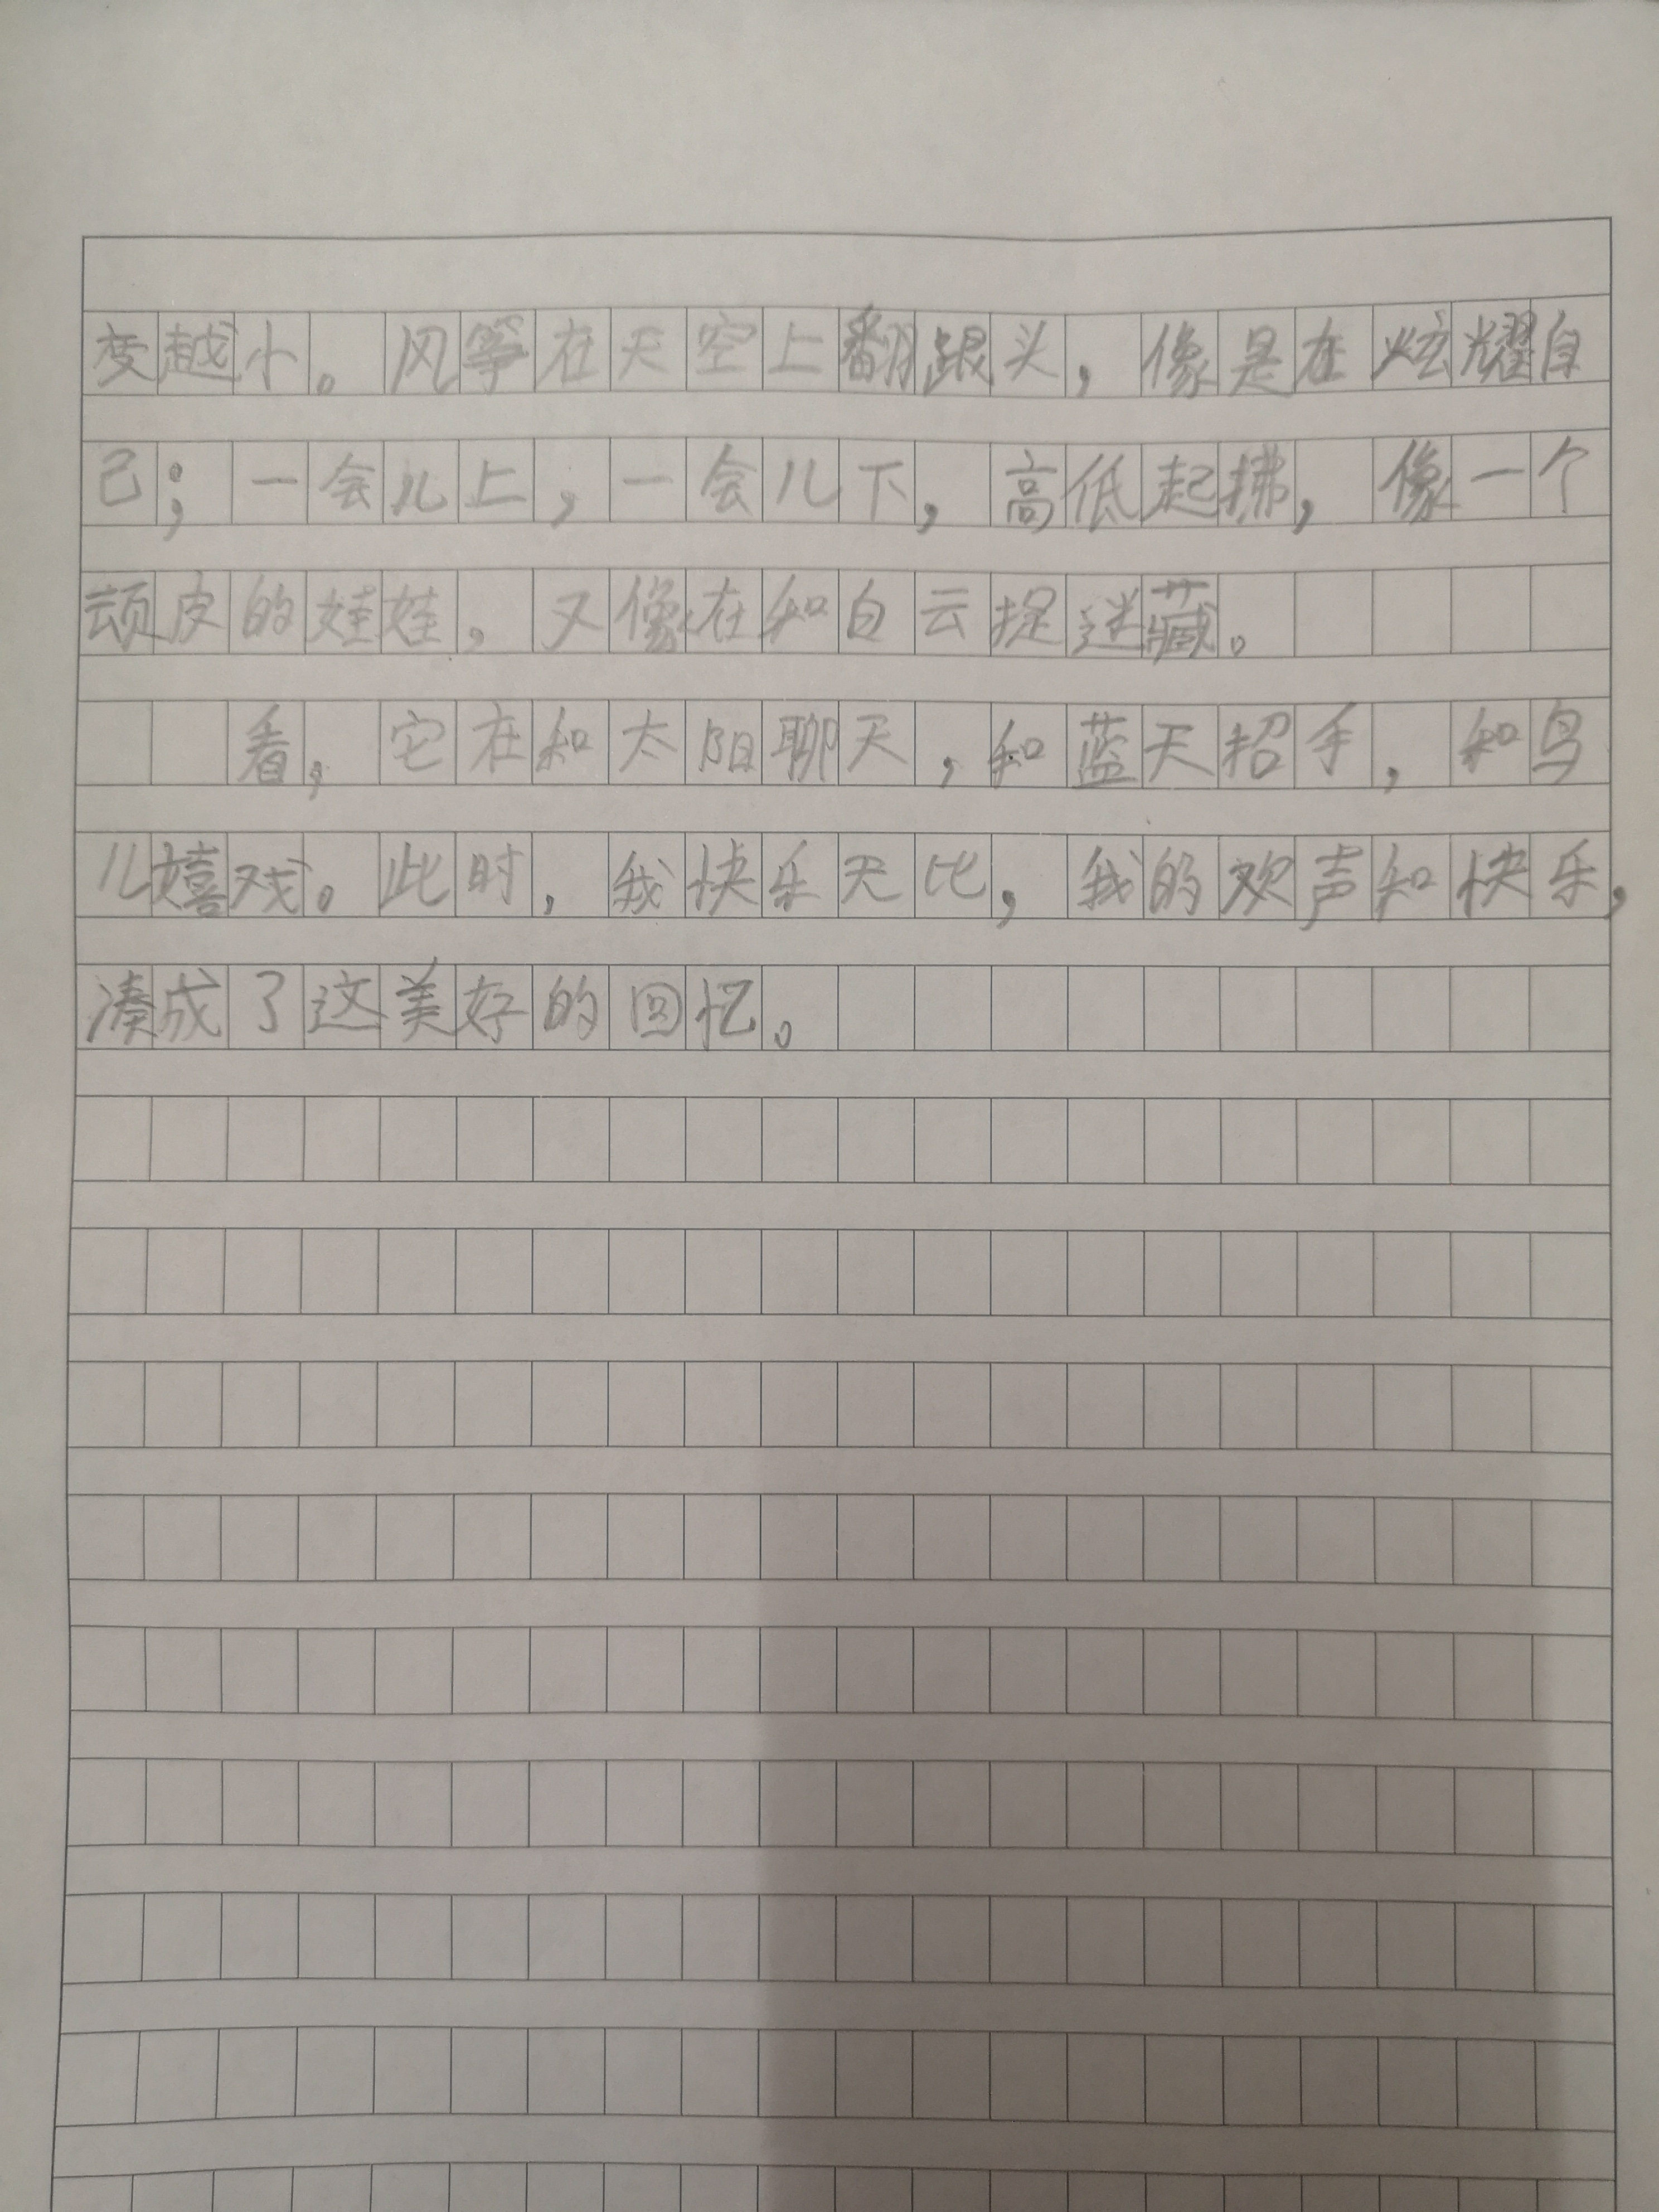 变越小。风筝在天空上翻跟头，像是在炫耀自
己；一会儿上，一会儿下，高低起拂，像一个
顽皮的娃娃，又像在和白云捉迷藏。
看，它在和太阳聊天，和蓝天招手，和鸟
儿嬉戏。此时，我快乐无比，我的欢声和快乐，
凑成了这美好的回忆。